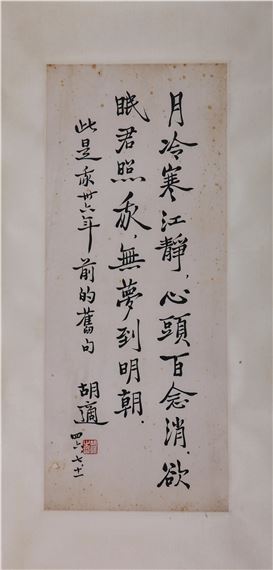 月冷寒江靜，心頭百念消，欲
眠君照我，無夢到明朝．
此是我卅六年前的舊句
胡適
四六、七、十一